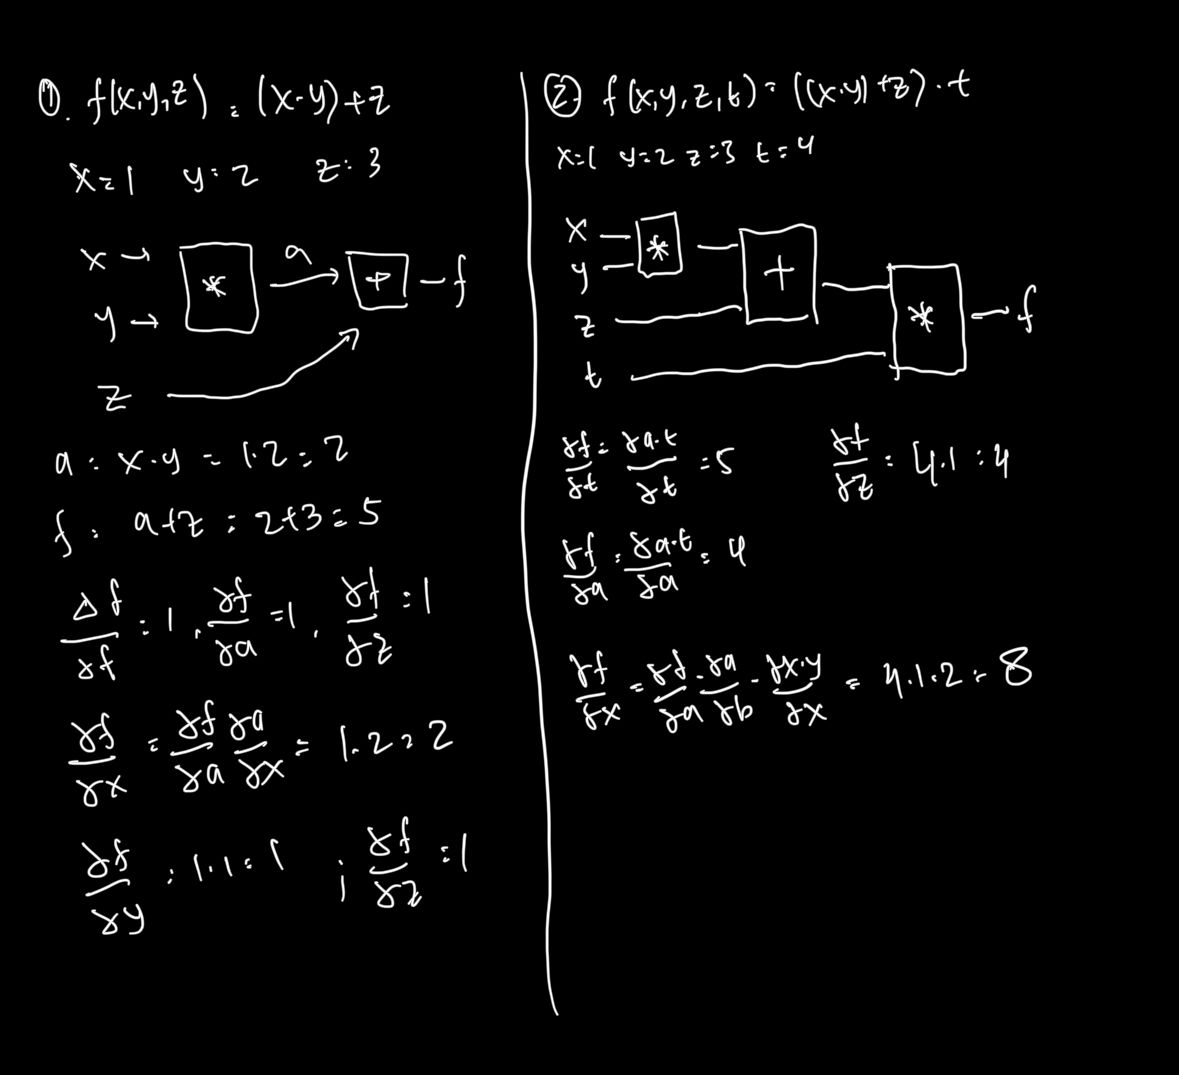 ①. f(x,y,z) = (x·y)+z
x=1 y=2 z=3
x → * a → + – f
y →
z
a = x·y = 1·2 = 2
f = a+z = 2+3 = 5
Δf/∂f = 1, ∂f/∂a = 1, ∂f/∂z = 1
∂f/∂x = ∂f/∂a ∂a/∂x = 1·2 = 2
∂f/∂y = 1·1 = 1 ; ∂f/∂z = 1
② f(x,y,z,t) = ((x·y)+z)·t
x=1 y=2 z=3 t=4
x * +
y
z * – f
t
∂f/∂t = ∂a·t/∂t = 5 ∂f/∂z = 4·1 = 4
∂f/∂a = ∂a·t/∂a = 4
∂f/∂x = ∂f/∂a · ∂a/∂b · ∂x·y/∂x = 4·1·2 = 8